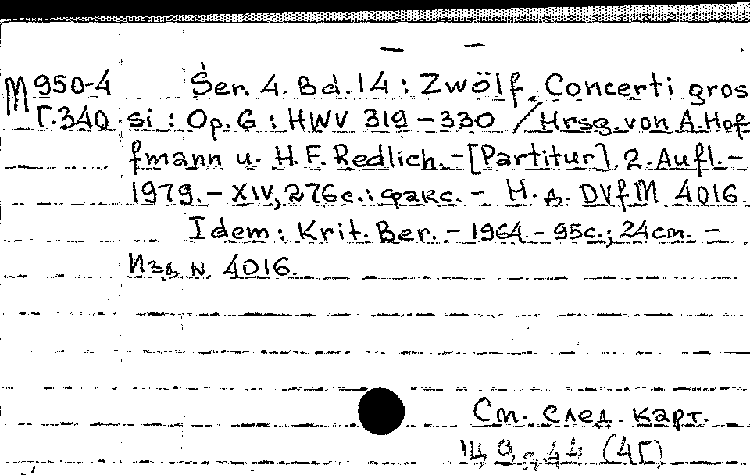 М 950-4 Ser. 4. Bd. 14 : Zwölf Concerti gros
Г.340 si : Op. 6 : HWV 319-330 / Hrsg. von A. Hof
fmann u. H. F. Redlich. - [Partitur]. 2. Aufl. -
1979. - XIV, 276 с. : факс. - Н. д. DVfM 4016.
Idem : Krit. Ber. - 1964 - 95с.; 24cm. -
Изд. N. 4016.
См. след. карт.